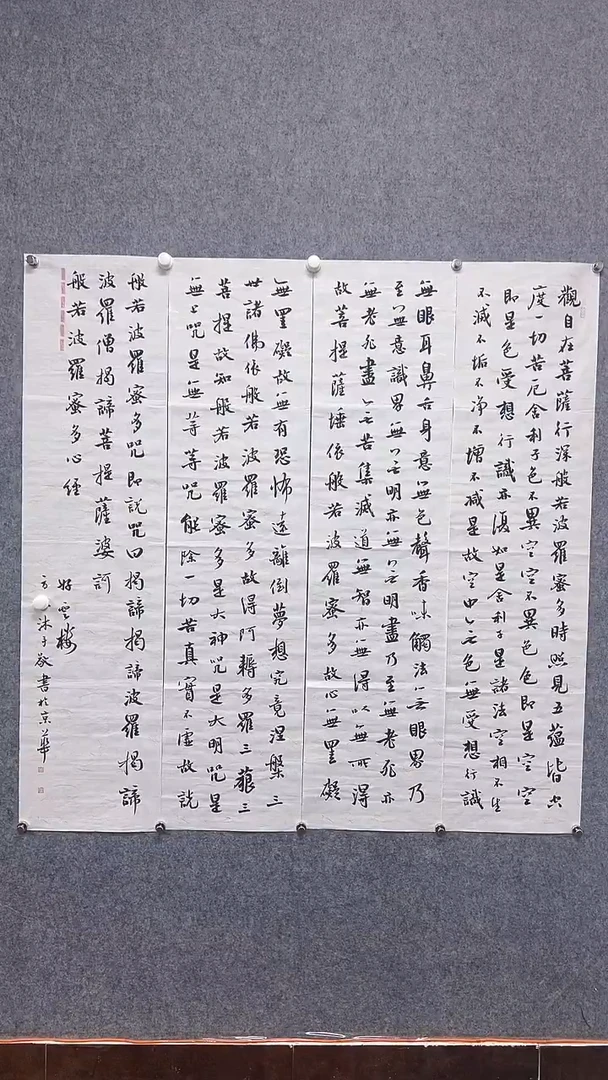 觀自在菩薩行深般若波羅蜜多時照見五蘊皆空
度一切苦厄舍利子色不異空空不異色色即是空空
即是色受想行識亦復如是舍利子是諸法空相不生
不滅不垢不净不增不减是故空中無色無受想行識
無眼耳鼻舌身意無色聲香味觸法無眼界乃
至無意識界無無明亦無無明盡乃至無老死亦
無老死盡無苦集滅道無智亦無得以無所得
故菩提薩埵依般若波羅蜜多故心無罣礙
無罣礙故無有恐怖遠離倒夢想究竟涅槃三
世諸佛依般若波羅蜜多故得阿耨多羅三藐三
菩提故知般若波羅蜜多是大神咒是大明咒是
無上咒是無等等咒能除一切苦真實不虛故説
般若波羅蜜多咒即説咒曰揭諦揭諦波羅揭諦
波羅僧揭諦菩提薩婆訶
般若波羅蜜多心經
好雲樓
沐子敬書於京華